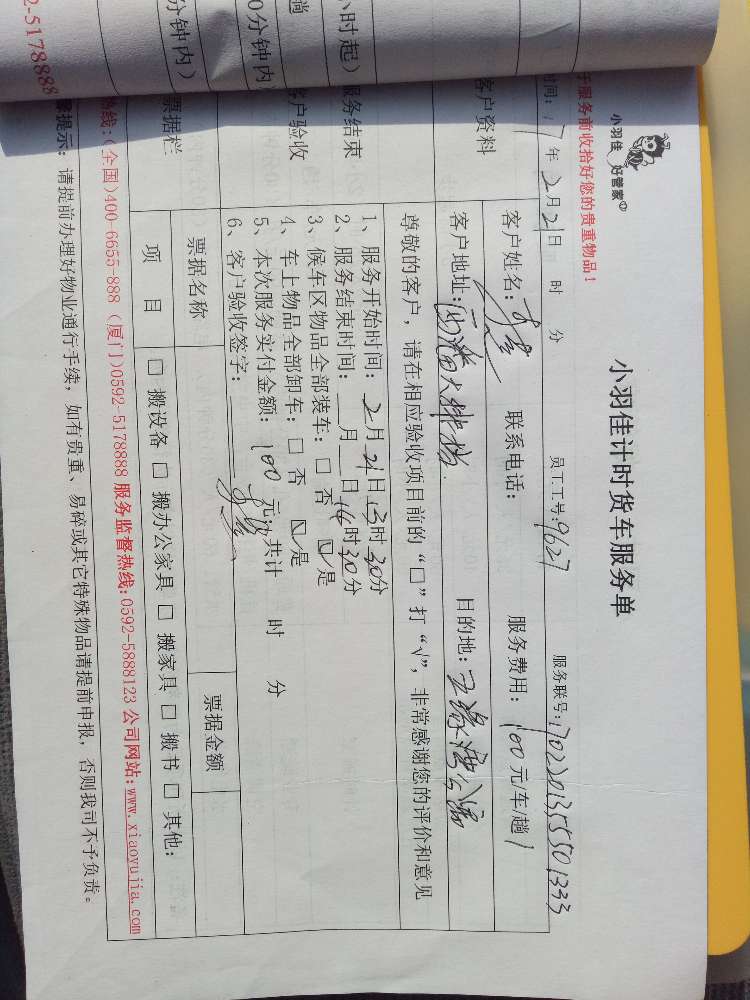 小羽佳 好管家
小羽佳计时货车服务单
服务前收拾好您的贵重物品！
时间：17年2月21日 时 分 员工工号：9627 服务联号：
客户资料
客户姓名： 联系电话： 服务费用：100元/车/趟
客户地址： 大排档 目的地： 公寓
尊敬的客户，请在相应验收项目前的“□”打“√”，非常感谢您的评价和意见
服务结束
客户验收
1、服务开始时间：2月21日13时30分
2、服务结束时间： 月 日14时30分
3、候车区物品全部装车：□ 否 ☑ 是
4、车上物品全部卸车：□ 否 ☑ 是
5、本次服务实付金额：100元 共计 时 分
6、客户验收签字：
票据栏
票据名称 票据金额
项 目 □ 搬设备 □ 搬办公家具 □ 搬家具 □ 搬书 □ 其他：
热线：(全国)400-6655-888 (厦门)0592-5178888 服务监督热线：0592-5888123 公司网站：www.xiaoyujia.com
提示：请提前办理好物业通行手续，如有贵重、易碎或其它特殊物品请提前申报，否则我司不予负责。
小时起)
0分钟内)
分钟内)
2-5178888